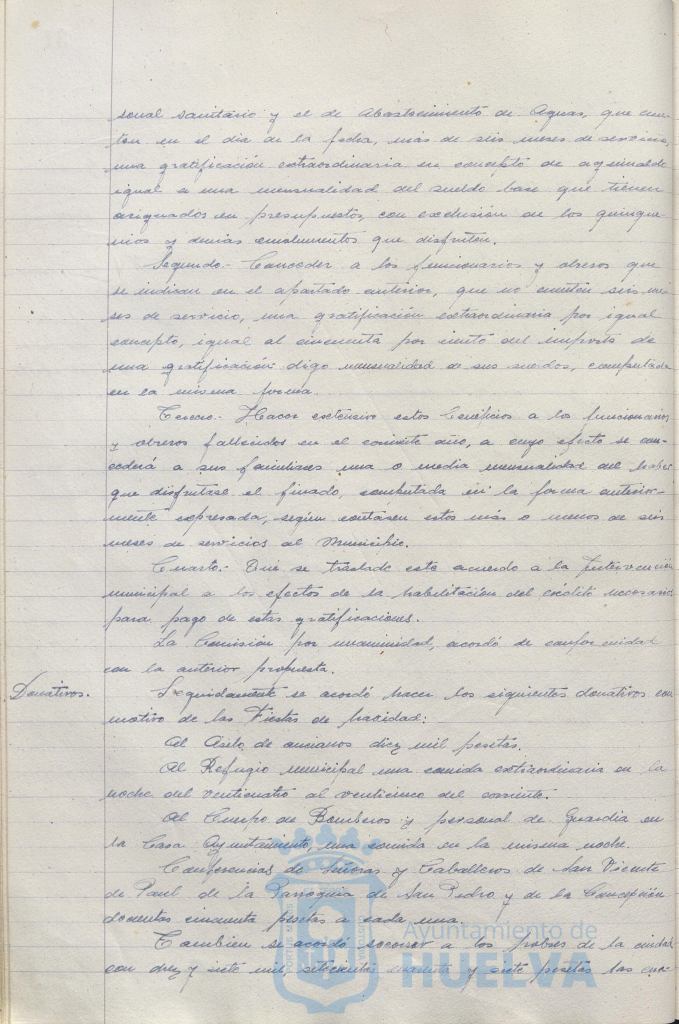 sonal sanitario y el de Abastecimiento de Aguas, que cuen-
ten en el día de la fecha, más de seis meses de servicio,
una gratificación extraordinaria en concepto de aguinaldo
igual a una mensualidad del sueldo base que tienen
asignados en presupuestos, con exclusión de los quinque-
nios y demás emolumentos que disfruten.
Segundo.- Conceder a los funcionarios y obreros que
se indican en el apartado anterior, que no cuenten seis me-
ses de servicio, una gratificación extraordinaria por igual
concepto, igual al cincuenta por ciento del importe de
una gratificación digo mensualidad de sus sueldos, computada
en la misma forma.
Tercero.- Hacer extensivo estos beneficios a los funcionarios
y obreros fallecidos en el corriente año, a cuyo efecto se con-
cederá a sus familiares una o media mensualidad del haber
que disfrutase el finado, computada en la forma anterior-
mente expresada, según contasen estos más o menos de seis
meses de servicios al Municipio.
Cuarto.- Que se traslade este acuerdo a la Intervención
municipal a los efectos de la habilitación del crédito necesario
para pago de estas gratificaciones.
La Comisión por unanimidad, acordó de conformidad
con la anterior propuesta.
Donativos.
Seguidamente se acordó hacer los siguientes donativos con
motivo de las Fiestas de Navidad:
Al Asilo de ancianos diez mil pesetas.
Al Refugio municipal una comida extraordinaria en la
noche del venticuatro al venticinco del corriente.
Al Cuerpo de Bomberos y personal de Guardia en
la Casa Ayuntamiento, una comida en la misma noche.
Conferencias de Señoras y Caballeros de San Vicente
de Paul de la Parroquia de San Pedro y de la Concepción
doscientas cincuenta pesetas a cada una.
Tambien se acordó socorrer a los pobres de la ciudad
con diez y siete mil setecientas cuarenta y siete pesetas las cua-
Ayuntamiento de
HUELVA